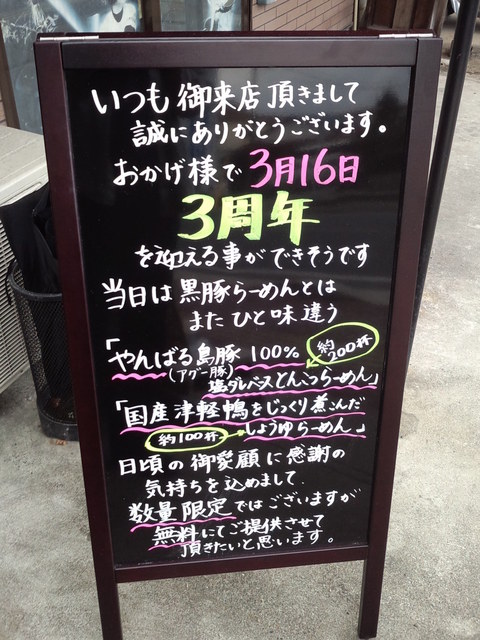 いつも御来店頂きまして
誠にありがとうございます。
おかげ様で3月16日
3周年
を迎える事ができそうです
当日は黒豚らーめんとは
またひと味違う
「やんばる島豚100%
約200杯
(アグー豚)
塩ダレベースとんこつらーめん」
「国産津軽鴨をじっくり煮こんだ
約100杯
しょうゆらーめん」
日頃の御愛顧に感謝の
気持ちを込めまして
数量限定ではございますが
無料にてご提供させて
頂きたいと思います。